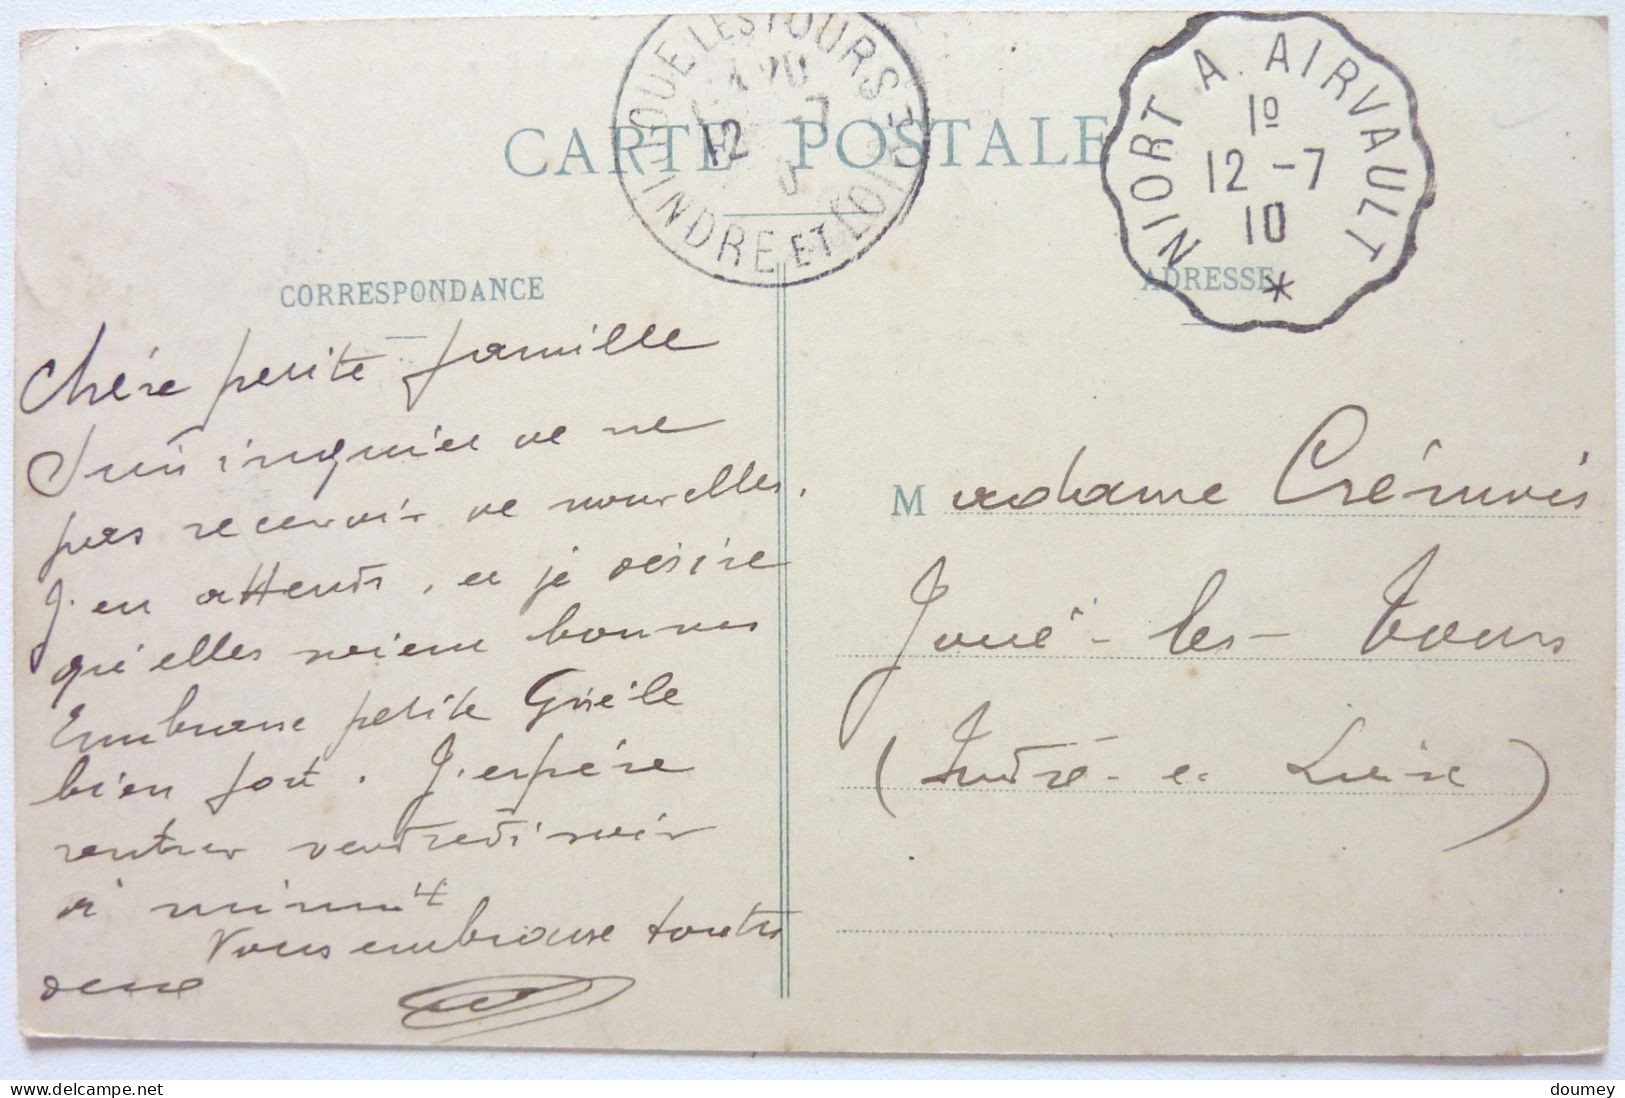 JOUE LES TOURS
12 -7
INDRE ET LOIRE
NIORT A. AIRVAULT
1º
12 -7
10
*
CARTE POSTALE
CORRESPONDANCE
ADRESSE
Chère petite famille
Suis inquiet de ne
pas recevoir de nouvelles.
J'en attends, et je désire
qu'elles soient bonnes
Embrasse petite
bien fort. J'espère
rentrer vendredi soir
à minuit
Vous embrasse toutes
deux
Madame Crémois
Joué-les-Tours
(Indre-et-Loire)
doumey